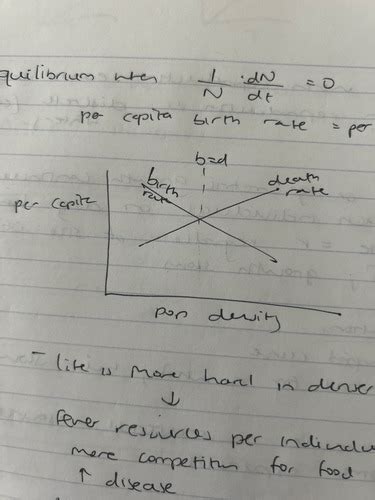 quilibrium when 1/N · dN/dt = 0
per capita birth rate = per
b=d
birth rate
death rate
per capita
pop density
- life is more hard in denser
↓
fewer resources per individu
more competition for food
↑ disease